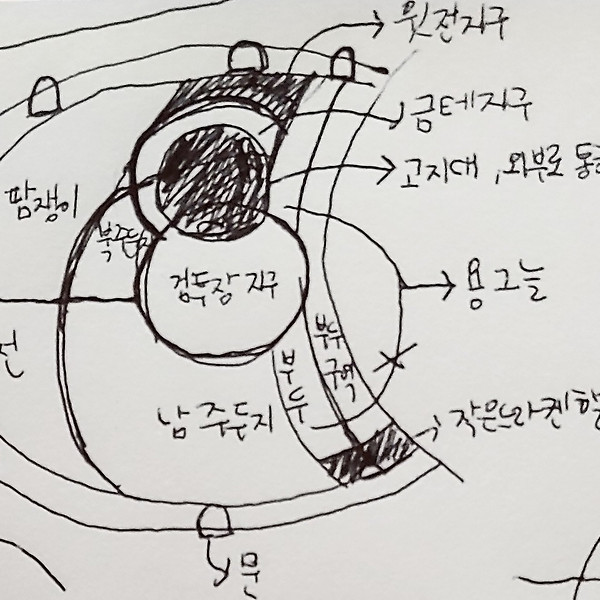 윗전지구
금테지구
고지대, 외부로 통하
땅쟁이
북주둔지
검투장 지구
용그늘
부두
구역
부두
남 주둔지
작은드라켄함
문